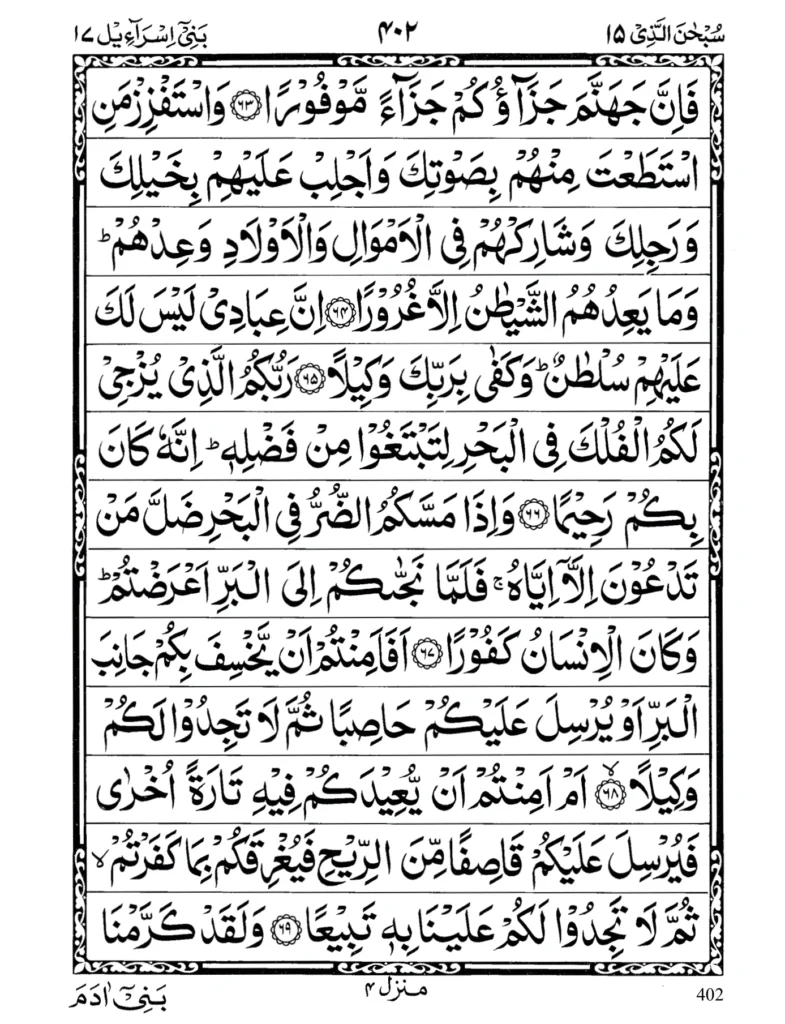 سُبْحٰنَ الَّذِیْۤ ۱۵ ۴۰۲ بَنِیْۤ اِسْرَآءِیْل ۱۷
فَاِنَّ جَهَنَّمَ جَزَآؤُكُمْ جَزَآءً مَّوْفُوْرًا ﴿۶۳﴾ وَاسْتَفْزِزْ مَنِ
اسْتَطَعْتَ مِنْهُمْ بِصَوْتِكَ وَاَجْلِبْ عَلَیْهِمْ بِخَیْلِكَ
وَرَجِلِكَ وَشَارِكْهُمْ فِی الْاَمْوَالِ وَالْاَوْلَادِ وَعِدْهُمْ ؕ
وَمَا یَعِدُهُمُ الشَّیْطٰنُ اِلَّا غُرُوْرًا ﴿۶۴﴾ اِنَّ عِبَادِیْ لَیْسَ لَكَ
عَلَیْهِمْ سُلْطٰنٌ ؕ وَكَفٰی بِرَبِّكَ وَكِیْلًا ﴿۶۵﴾ رَبُّكُمُ الَّذِیْ یُزْجِیْ
لَكُمُ الْفُلْكَ فِی الْبَحْرِ لِتَبْتَغُوْا مِنْ فَضْلِهٖ ؕ اِنَّهٗ كَانَ
بِكُمْ رَحِیْمًا ﴿۶۶﴾ وَاِذَا مَسَّكُمُ الضُّرُّ فِی الْبَحْرِ ضَلَّ مَنْ
تَدْعُوْنَ اِلَّاۤ اِیَّاهُ ۚ فَلَمَّا نَجّٰىكُمْ اِلَی الْبَرِّ اَعْرَضْتُمْ ؕ
وَكَانَ الْاِنْسَانُ كَفُوْرًا ﴿۶۷﴾ اَفَاَمِنْتُمْ اَنْ یَّخْسِفَ بِكُمْ جَانِبَ
الْبَرِّ اَوْ یُرْسِلَ عَلَیْكُمْ حَاصِبًا ثُمَّ لَا تَجِدُوْا لَكُمْ
وَكِیْلًا ﴿۶۸﴾ ۙ اَمْ اَمِنْتُمْ اَنْ یُّعِیْدَكُمْ فِیْهِ تَارَةً اُخْرٰی
فَیُرْسِلَ عَلَیْكُمْ قَاصِفًا مِّنَ الرِّیْحِ فَیُغْرِقَكُمْ بِمَا كَفَرْتُمْ ۙ
ثُمَّ لَا تَجِدُوْا لَكُمْ عَلَیْنَا بِهٖ تَبِیْعًا ﴿۶۹﴾ وَلَقَدْ كَرَّمْنَا
بَنِیْۤ اٰدَمَ منزل ۴ 402